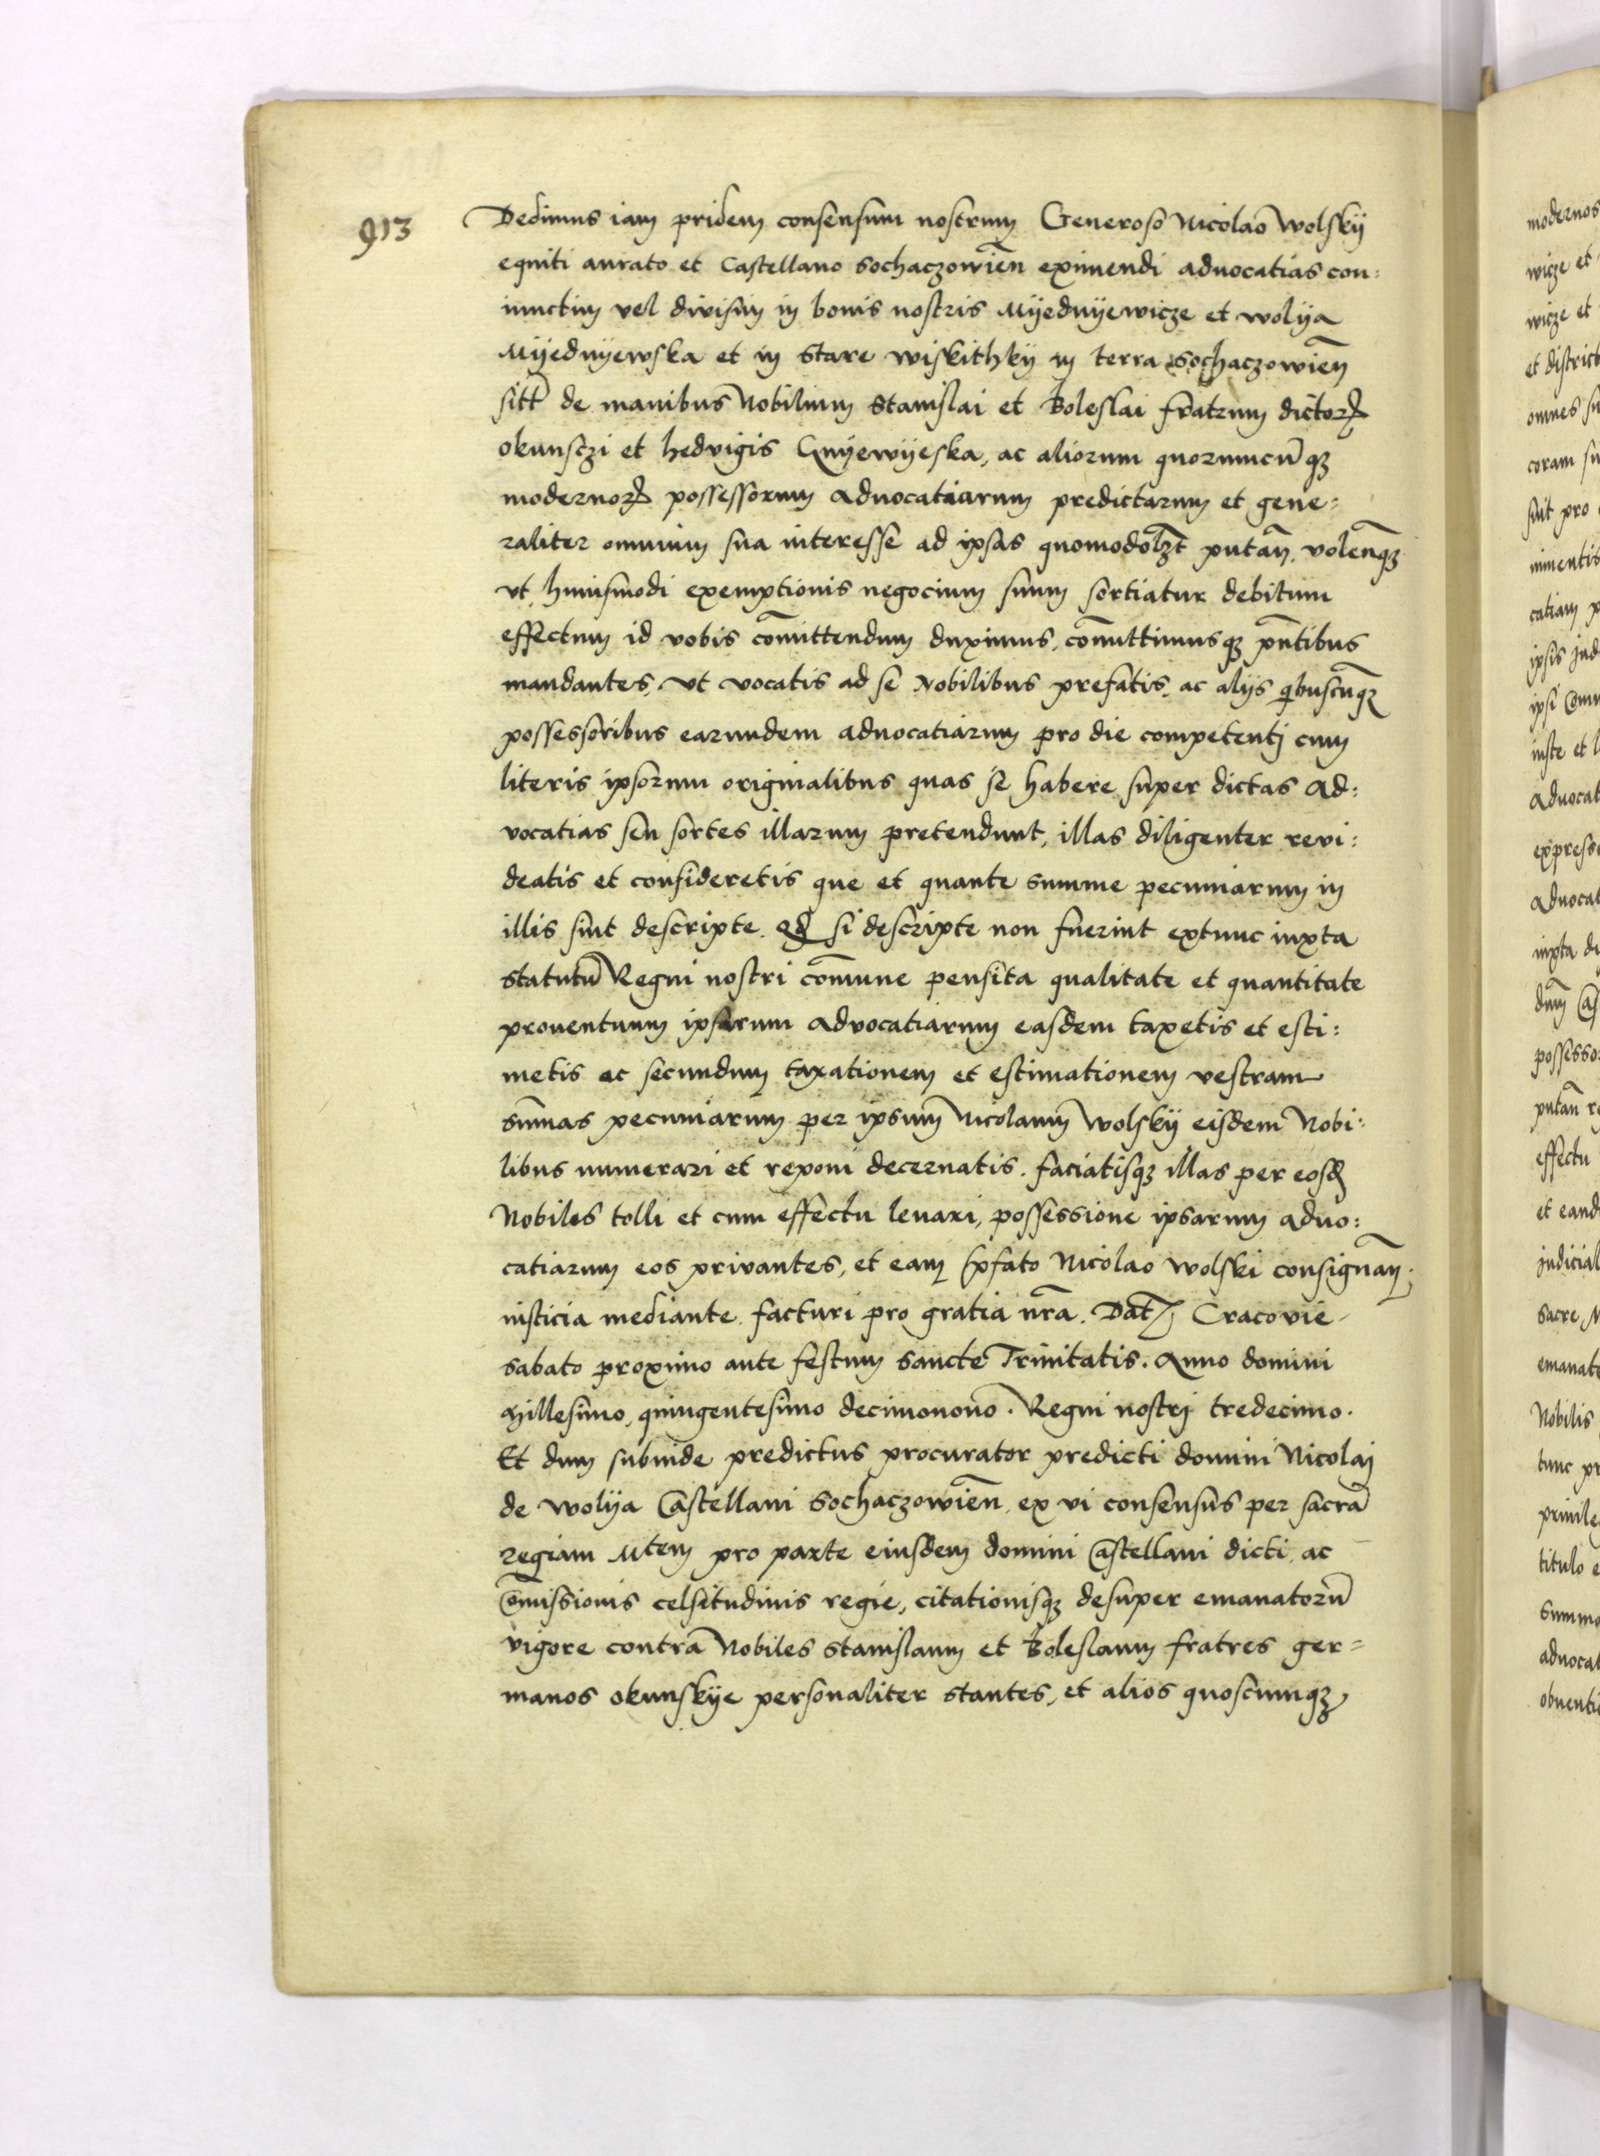 913
Dedimus iam pridem consensum nostrum Generoso Nicolao Wolskÿ
equiti aurato et Castellano Sochaczowien̄ eximendi aduocatias con:
iunctim vel divisim in bonis nostris Mÿednÿewicze et wolÿa
Mÿednÿewska et in Stare wiskithkÿ in terra Sochaczowien̄
sitt̄ de manibus Nobilium Stanislai et Boleslai fratrum dictorꝝ
okunsczi et hedvigis Gnÿewÿeska, ac aliorum quorumcūqꝫ
modernorꝝ possessorum aduocatiarum predictarum et gene:
raliter omnium sua interesse ad ipsas quomodolꝫt putan̄, volen̄qꝫ
vt huiusmodi exemptionis negocium suum sortiatur debitum
effectum id vobis com̄ittendum duximus, com̄ittimusqꝫ pn̄tibus
mandantes, vt vocatis ad se Nobilibus prefatis, ac alÿs qibuscūqꝫ
possessoribus earundem aduocatiarum pro die competentj cum
literis ipsorum originalibus quas se habere super dictas Ad:
vocatias seu sortes illarum pretendunt, illas diligenter revi:
deatis et consideretis que et quante summe pecuniarum in
illis sint descripte. qd si descripte non fuerint extunc iuxta
statutū Regni nostri com̄une pensita qualitate et quantitate
prouentuum ipsarum advocatiarum easdem taxetis et esti:
metis ac secundum taxationem et estimationem vestram
sum̄as pecuniarum per ipsum Nicolaum Wolskÿ eisdem Nobi:
libus numerari et reponi decernatis. faciatisqꝫ illas per eosd
Nobiles tolli et cum effectu leuari, possessione ipsarum aduo:
catiarum eos privantes, et eam p̄fato Nicolao Wolski consignan̄.
iusticia mediante facturi pro gratia nr̄a. Dat̄ Cracovie
sabato proximo ante festum sancte Trinitatis. Anno domini
Millesimo, quingentesimo decimonono. Regni nostrj tredecimo.
Et dum subinde predictus procurator predicti domini Nicolaj
de Wolÿa Castellani Sochaczowien̄ ex vi consensus per sacrā
regiam Mtem pro parte eiusdem domini Castellani dicti ac
Com̄issionis celsitudinis regie, citationisqꝫ desuper emanatorū
vigore contra Nobiles Stanislaum et Boleslaum fratres ger=
manos okunskÿe personaliter stantes, et alios quoscumqꝫ